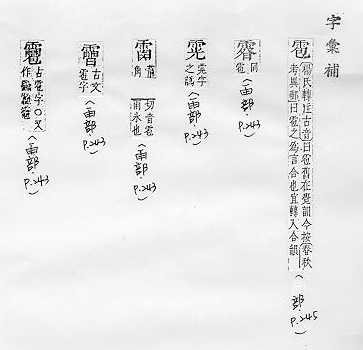 字彙補
雹
楊氏轉注古音曰雹舊在覺韻今按春秋
考異郵曰雹之為言合也宜轉入合韻
(部. P.245
同
雹
(雨部. P.243
字
之譌
(雨部. P.243
蒲
角
切音雹
雨冰也
(雨部. P.243
古文
雹字
(雨部. P.243
古雹字○又
作
(雨部. P.243